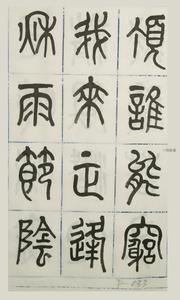 頂誰能窮
我來正逢
秋雨節陰